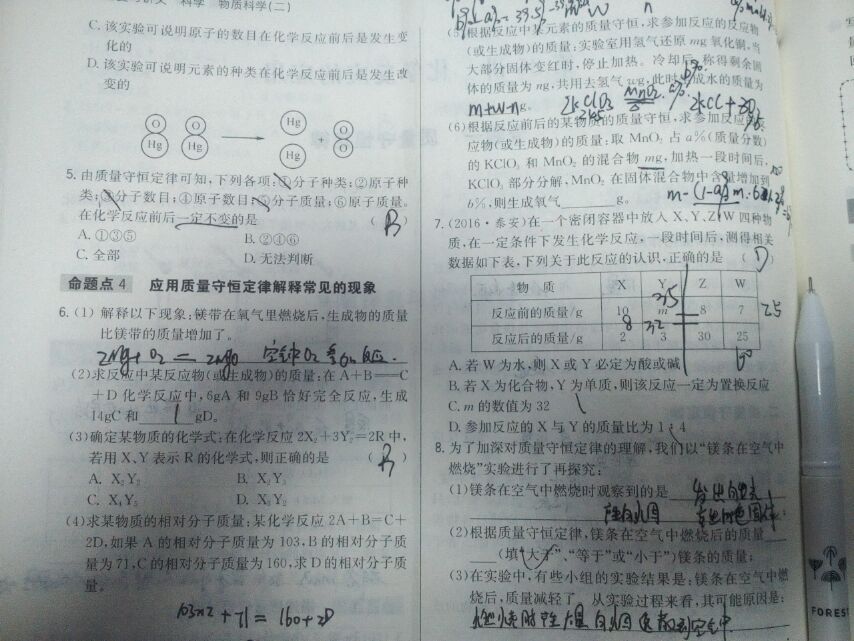 C. 该实验可说明原子的数目在化学反应前后是发生变
化的
D. 该实验可说明元素的种类在化学反应前后是发生改
变的
O O Hg O
Hg Hg Hg O
5. 由质量守恒定律可知,下列各项:①分子种类;②原子种
类;③分子数目;④原子数目;⑤分子质量;⑥原子质量。
在化学反应前后一定不变的是 ( B )
A. ①③⑤ B. ②④⑥
C. 全部 D. 无法判断
命题点 4 应用质量守恒定律解释常见的现象
6. (1) 解释以下现象:镁带在氧气里燃烧后,生成物的质量
比镁带的质量增加了。
2Mg+O₂=2MgO 空气中O₂参加反应.
(2)求反应中某反应物(或生成物)的质量:在 A+B══C
+D 化学反应中,6gA 和 9gB 恰好完全反应,生成
14gC 和 1 gD。
(3)确定某物质的化学式:在化学反应 2X₂+3Y₂=2R 中,
若用 X、Y 表示 R 的化学式,则正确的是 ( B )
A. X₂Y₂ B. X₂Y₃
C. X₄Y₅ D. X₃Y₂
(4)求某物质的相对分子质量:某化学反应 2A+B=C+
2D,如果 A 的相对分子质量为 103,B 的相对分子质
量为 71,C 的相对分子质量为 160,求 D 的相对分子质
量。
103×2+71=160+2D
(5)根据反应中某元素的质量守恒,求参加反应的反应物
(或生成物)的质量:实验室用氢气还原 mg 氧化铜,当
大部分固体变红时,停止加热。冷却后,称得剩余固
体的质量为 ng,共用去氢气 wg,此时生成水的质量为
m+w-n g。
2KClO₃ MnO₂ 2KCl+3O₂
(6)根据反应前后的某物质的质量守恒,求参加反应的反
应物(或生成物)的质量:取 MnO₂ 占 a%(质量分数)
的 KClO₃ 和 MnO₂ 的混合物 mg,加热一段时间后,
KClO₃ 部分分解,MnO₂ 在固体混合物中含量增加到
b%,则生成氧气 g。
7. (2016·泰安)在一个密闭容器中放入 X、Y、Z、W 四种物
质,在一定条件下发生化学反应,一段时间后,测得相关
数据如下表,下列关于此反应的认识,正确的是 ( D )
物 质 X Y Z W
35
反应前的质量/g 10 m 8 7 25
8 32
反应后的质量/g 2 3 30 25
60
A. 若 W 为水,则 X 或 Y 必定为酸或碱
B. 若 X 为化合物,Y 为单质,则该反应一定为置换反应
C. m 的数值为 32
D. 参加反应的 X 与 Y 的质量比为 1∶4
8. 为了加深对质量守恒定律的理解,我们以“镁条在空气中
燃烧”实验进行了再探究:
(1)镁条在空气中燃烧时观察到的是
(2)根据质量守恒定律,镁条在空气中燃烧后的质量
(填“大于”、“等于”或“小于”)镁条的质量;
(3)在实验中,有些小组的实验结果是:镁条在空气中燃
烧后,质量减轻了。从实验过程来看,其可能原因是:
燃烧时产生大量白烟逸散到空气中
FOREST